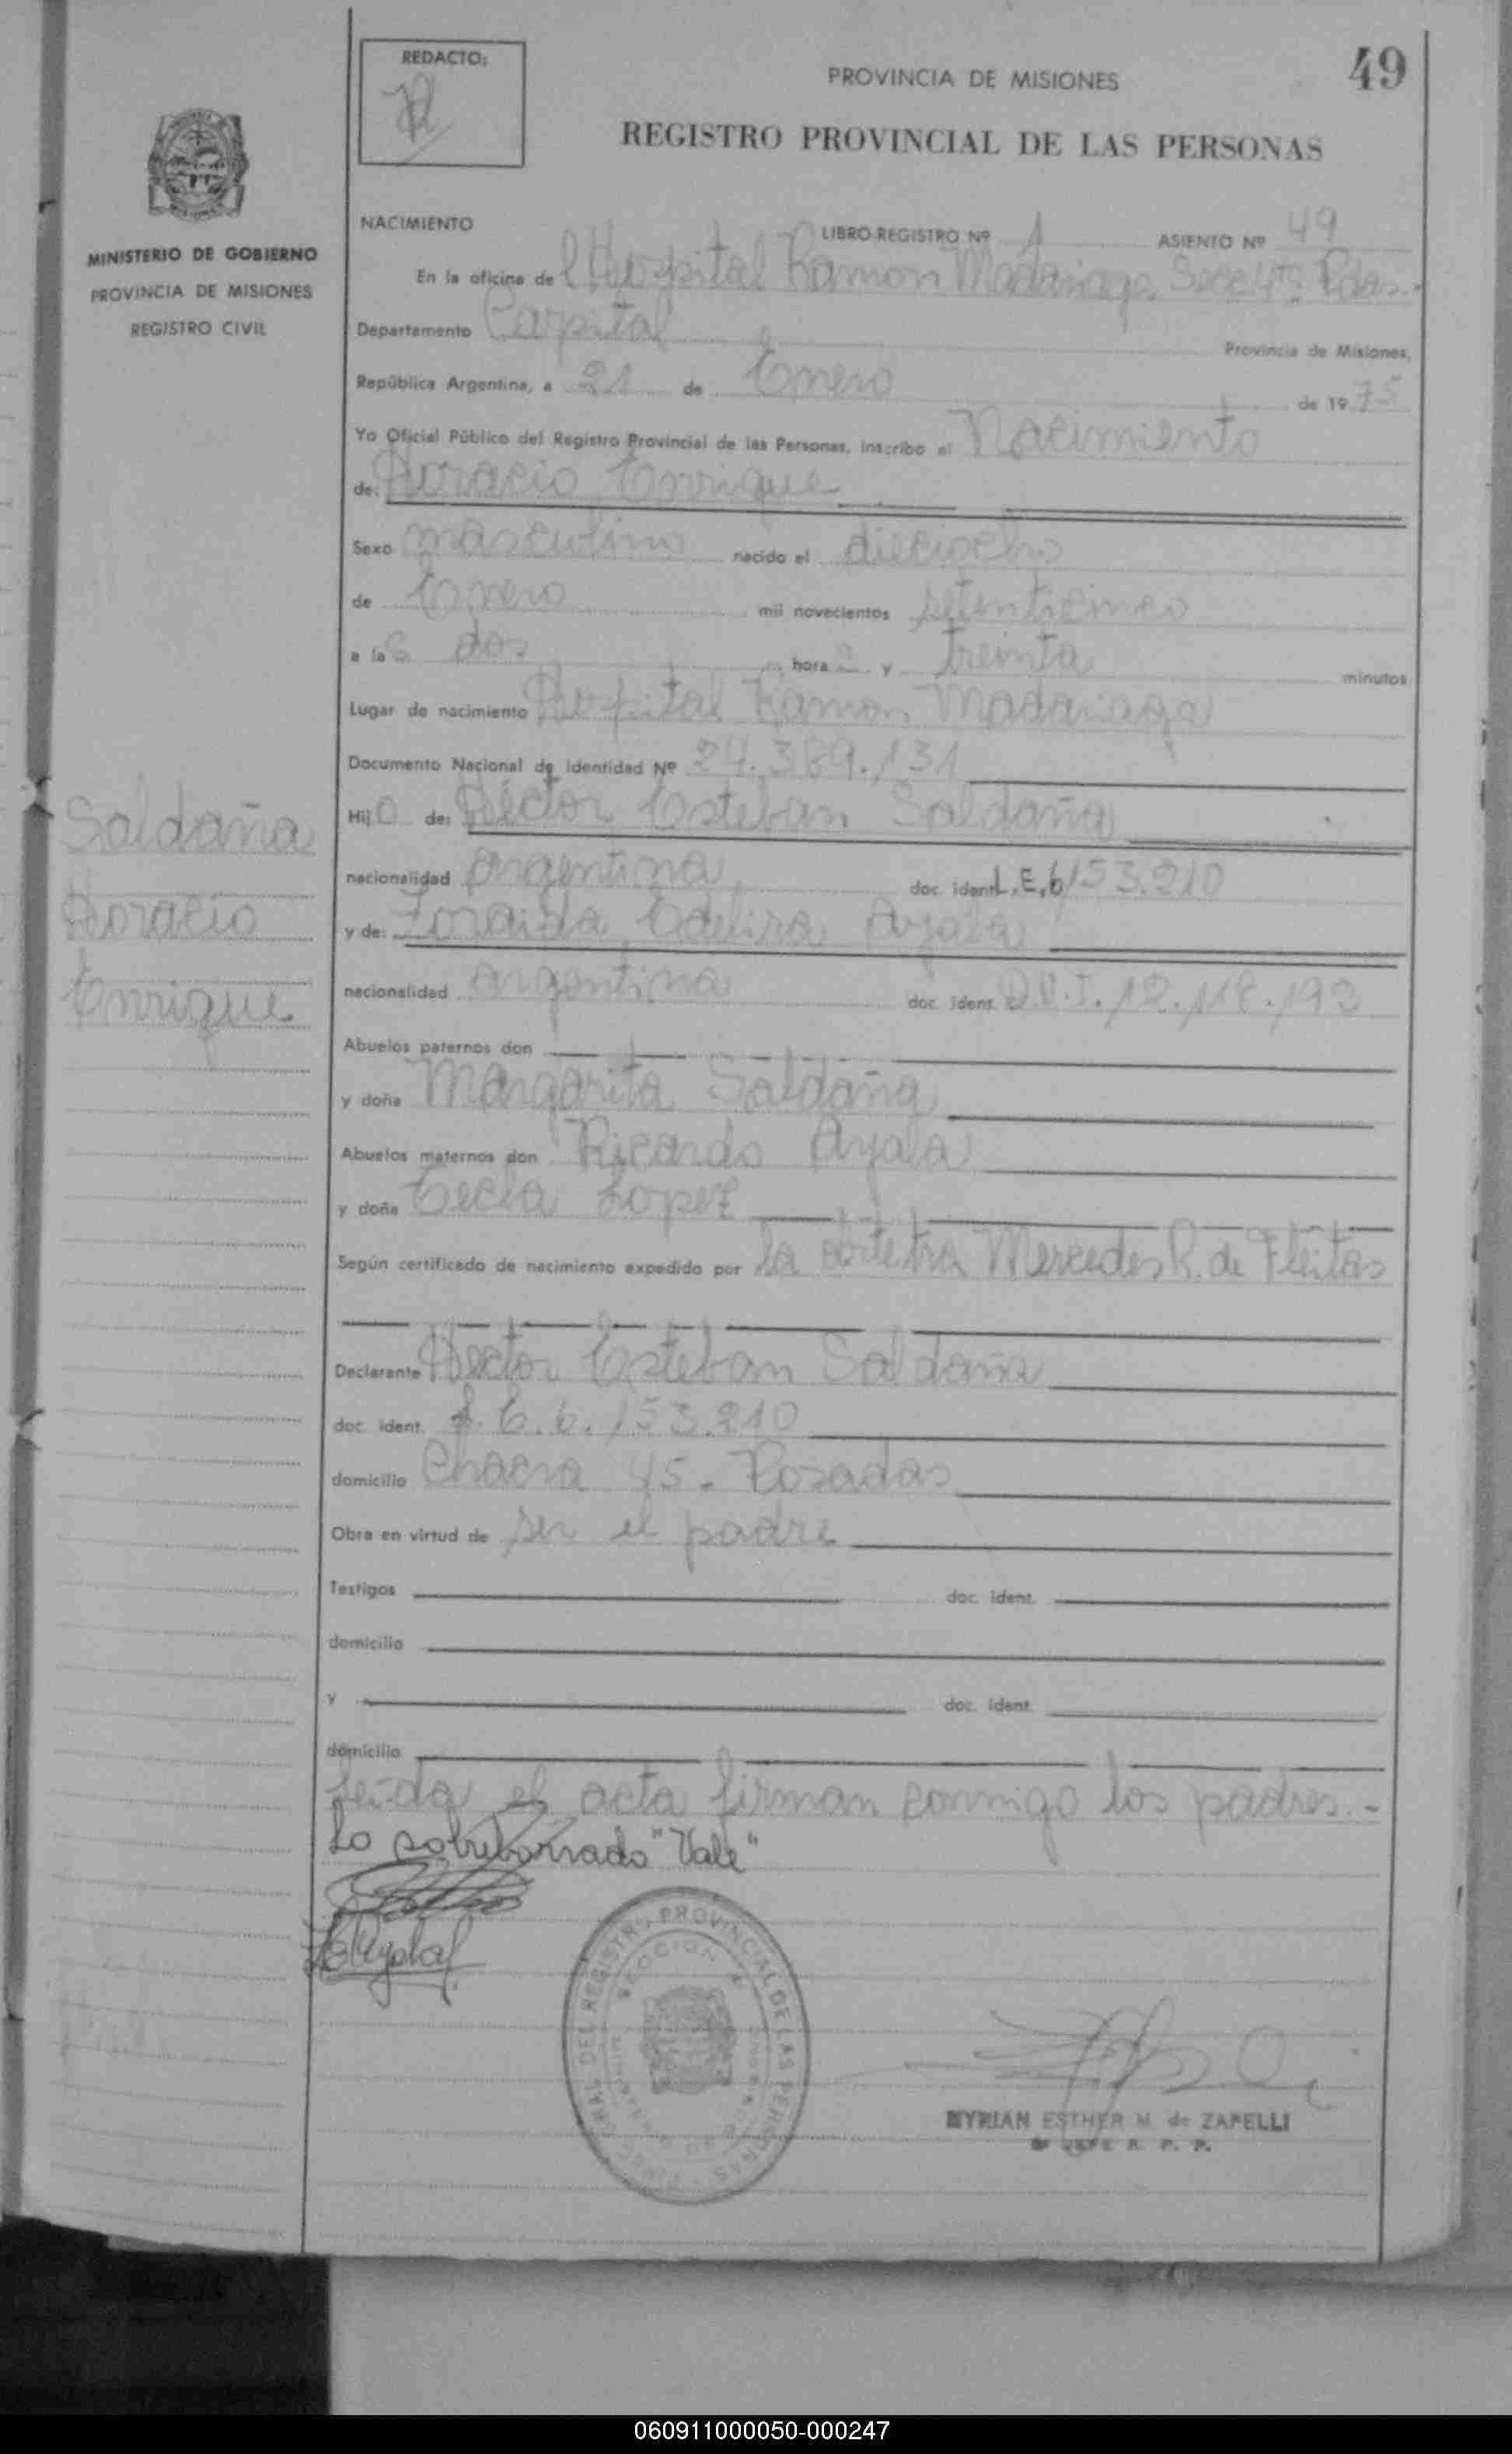 REDACTO:
PROVINCIA DE MISIONES
49
REGISTRO PROVINCIAL DE LAS PERSONAS
MINISTERIO DE GOBIERNO
PROVINCIA DE MISIONES
REGISTRO CIVIL
NACIMIENTO LIBRO-REGISTRO Nº 1 ASIENTO Nº 49
En la oficina del Hospital Ramon Madariaga Secc 4ta Pdas.
Departamento Capital Provincia de Misiones,
República Argentina, a 21 de Enero de 1975
Yo Oficial Público del Registro Provincial de las Personas, inscribo el Nacimiento
de: Horacio Enrique
Sexo masculino nacido el dieciocho
de Enero mil novecientos setenticinco
a las dos hora y treinta minutos
Lugar de nacimiento Hospital Ramon Madariaga
Documento Nacional de Identidad Nº 24.389.131
Hijo de: Héctor Esteban Saldaña
nacionalidad argentina doc. ident. L.E.6153.210
y de: Zoraida Edelira Ayala
nacionalidad argentina doc. ident. D.N.I. 12.118.192
Abuelos paternos don
y doña Margarita Saldaña
Abuelos maternos don Ricardo Ayala
y doña Tecla Lopez
Según certificado de nacimiento expedido por la obstetra Mercedes R. de Fleitas
Declarante Héctor Esteban Saldaña
doc. ident. L.E. 6.153.210
domicilio Chacra 45 - Posadas
Obra en virtud de ser el padre
Testigos doc. ident.
domicilio
y doc. ident.
domicilio
Leída el acta firman conmigo los padres.-
Lo sobreborrado "Vale"
Saldaña
Horacio
Enrique
ZEAyala
DEL REGISTRO PROVINCIAL DE LAS PERSONAS
SECCION
MYRIAN ESTHER M. de ZAPELLI
JEFE R. P. P.
060911000050-000247